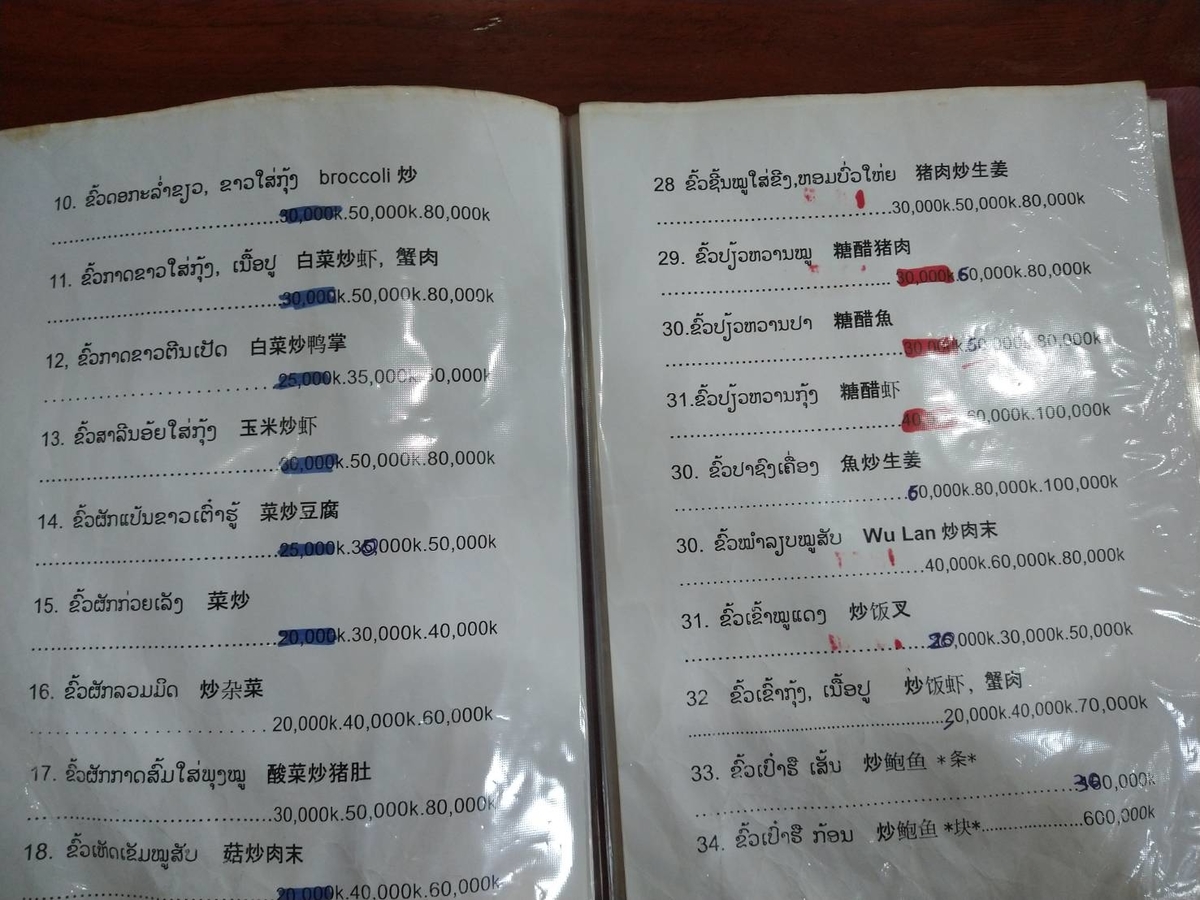 10. ຂົ້ວດອກະລ່ຳຂຽວ, ຂາວໃສ່ກຸ້ງ broccoli 炒
30,000k.50,000k.80,000k
11. ຂົ້ວກາດຂາວໃສ່ກຸ້ງ, ເນື້ອປູ 白菜炒虾, 蟹肉
30,000k.50,000k.80,000k
12, ຂົ້ວກາດຂາວຕີນເປັດ 白菜炒鸭掌
25,000k.35,000k.50,000k
13. ຂົ້ວສາລີນອ້ຍໃສ່ກຸ້ງ 玉米炒虾
30,000k.50,000k.80,000k
14. ຂົ້ວຜັກແປ້ນຂາວເຕົ້າຮູ້ 菜炒豆腐
25,000k.30,000k.50,000k
15. ຂົ້ວຜັກກ່ວຍເລັງ 菜炒
20,000k.30,000k.40,000k
16. ຂົ້ວຜັກລວມມິດ 炒杂菜
20,000k.40,000k.60,000k
17. ຂົ້ວຜັກກາດສົ້ມໃສ່ພຸງໝູ 酸菜炒猪肚
30,000k.50,000k.80,000k
18. ຂົ້ວເຫັດເຂັມໝູສັບ 菇炒肉末
20,000k.40,000k.60,000k
28 ຂົ້ວຊີ້ນໝູໃສ່ຂີງ,ຫອມບົ່ວໃຫ່ຍ 猪肉炒生姜
30,000k.50,000k.80,000k
29. ຂົ້ວປຽ້ວຫວານໝູ 糖醋猪肉
30,000k.60,000k.80,000k
30.ຂົ້ວປຽ້ວຫວານປາ 糖醋魚
30,000k.60,000k.80,000k
31.ຂົ້ວປຽ້ວຫວານກຸ້ງ 糖醋虾
40 60,000k.100,000k
30. ຂົ້ວປາຊົງເຄື່ອງ 魚炒生姜
60,000k.80,000k.100,000k
30. ຂົ້ວໝຳລຽບໝູສັບ Wu Lan 炒肉末
40,000k.60,000k.80,000k
31. ຂົ້ວເຂົ້າໝູແດງ 炒饭叉
20,000k.30,000k.50,000k
32 ຂົ້ວເຂົ້າກຸ້ງ, ເນື້ອປູ 炒饭虾, 蟹肉
20,000k.40,000k.70,000k
33. ຂົ້ວເປົາຮື ເສັ້ນ 炒鲍鱼 *条*
300,000k
34. ຂົ້ວເປົາຮື ກ້ອນ 炒鲍鱼 *块* 600,000k